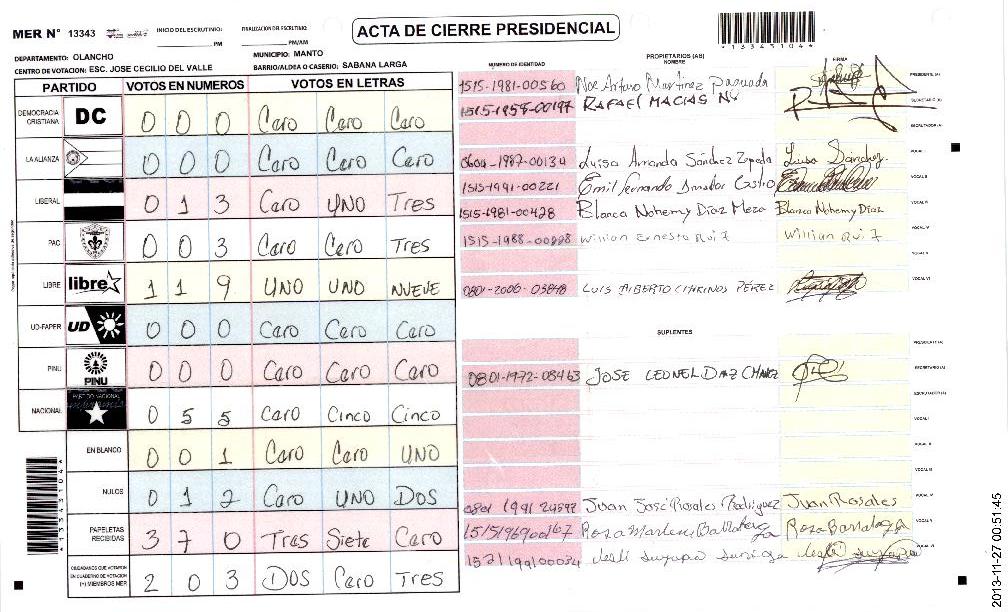 MER N° 13343
INICIO DEL ESCRUTINIO: PM
FINALIZACION DEL ESCRUTINIO: PM/AM
ACTA DE CIERRE PRESIDENCIAL
*13345104*
DEPARTAMENTO: OLANCHO
MUNICIPIO: MANTO
CENTRO DE VOTACION: ESC. JOSE CECILIO DEL VALLE
BARRIO/ALDEA O CASERIO: SABANA LARGA
PARTIDO VOTOS EN NUMEROS VOTOS EN LETRAS
DEMOCRACIA CRISTIANA DC 0 0 0 Caro Caro Caro
LA ALIANZA 0 0 0 Caro Caro Caro
LIBERAL 0 1 3 Caro UNO Tres
PAC 0 0 3 Caro Caro Tres
LIBRE libre 1 1 9 UNO UNO NUEVE
UD-FAPER UD 0 0 0 Caro Caro Caro
PINU PINU 0 0 0 Caro Caro Caro
NACIONAL PARTIDO NACIONAL 0 5 5 Caro Cinco Cinco
EN BLANCO 0 0 1 Caro Caro UNO
NULOS 0 1 2 Caro UNO DOS
PAPELETAS RECIBIDAS 3 7 0 Tres Siete Caro
CIUDADANOS QUE VOTARON EN CUADERNO DE VOTACION (+) MIEMBROS MER 2 0 3 DOS Caro Tres
*13345104*
NUMERO DE IDENTIDAD
PROPIETARIOS (AS)
NOMBRE
FIRMA
1515-1981-00560 Noe Arturo Martinez PRESIDENTE (A)
1515-1958-00197 RAFAEL MACIAS SECRETARIO (A)
ESCRUTADOR (A)
1987-00134 Luisa Amanda Sánchez Zepeda Luisa Sánchez. VOCAL I
1515-1991-00221 Emil Fernando Amador Castro VOCAL II
1515-1981-00428 Blanca Nohemy Díaz Meza Blanca Nohemy Díaz VOCAL III
1515-1988-00298 Willian Ernesto Ruiz Willian Ruiz VOCAL IV
VOCAL V
0801-2006-03848 LUIS ALBERTO PÉREZ VOCAL VI
SUPLENTES
PRESIDENTE (A)
0801-1972-08463 JOSE LEONEL DIAZ SECRETARIO (A)
ESCRUTADOR (A)
VOCAL I
VOCAL II
VOCAL III
0801 1991 Juan José Rosales Rodriguez Juan Rosales VOCAL IV
Rosa VOCAL V
VOCAL VI
2013-11-27 00:51:45